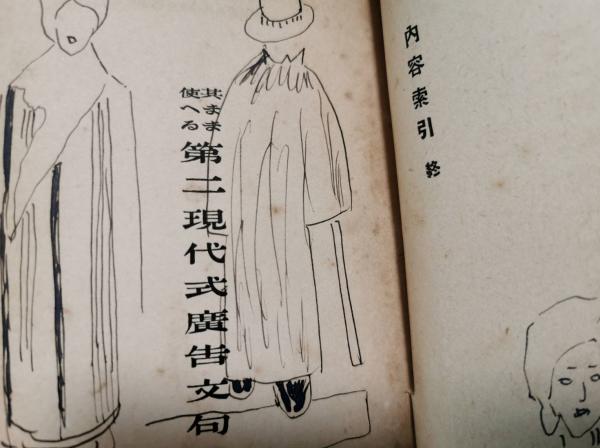 內容索引 終
其まま
使へる
第二現代式廣告文句